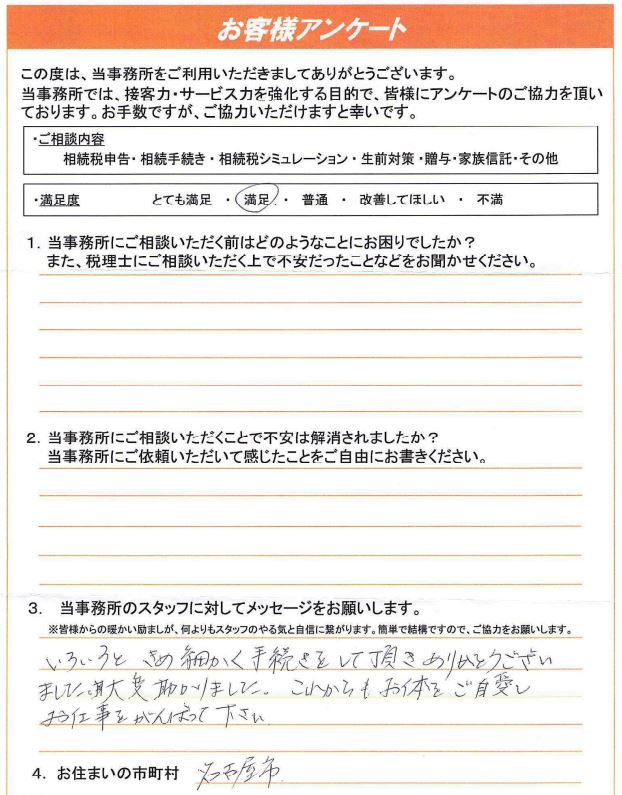 お客様アンケート
この度は、当事務所をご利用いただきましてありがとうございます。
当事務所では、接客力・サービス力を強化する目的で、皆様にアンケートのご協力を頂い
ております。お手数ですが、ご協力いただけますと幸いです。
・ご相談内容
相続税申告・相続手続き・相続税シミュレーション・生前対策・贈与・家族信託・その他
・満足度 とても満足 ・ 満足 ・ 普通 ・ 改善してほしい ・ 不満
1. 当事務所にご相談いただく前はどのようなことにお困りでしたか？
また、税理士にご相談いただく上で不安だったことなどをお聞かせください。
2. 当事務所にご相談いただくことで不安は解消されましたか？
当事務所にご依頼いただいて感じたことをご自由にお書きください。
3. 当事務所のスタッフに対してメッセージをお願いします。
※皆様からの暖かい励ましが、何よりもスタッフのやる気と自信に繋がります。簡単で結構ですので、ご協力をお願いします。
いろいろと きめ細かく手続きをして頂きありがとうござい
ました。大変助かりました。これからもお体をご自愛し
お仕事をがんばって下さい
4. お住まいの市町村 名古屋市